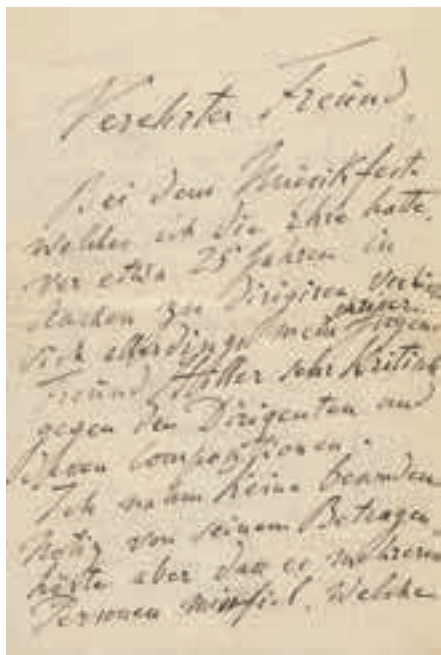 Verehrter Freund,
Bei dem Musikfest
welches ich die Ehre hatte,
vor etwa 25 Jahren in
Aachen zu Dirigiren
sich allerdings mein Jugend
Freund Hiller sehr Kritisch
gegen den Dirigenten und
Compositionen.
Ich nahm keine besondere
Notiz von seinem Betragen
hörte aber dass es mehreren
Personen missfiel. Welche